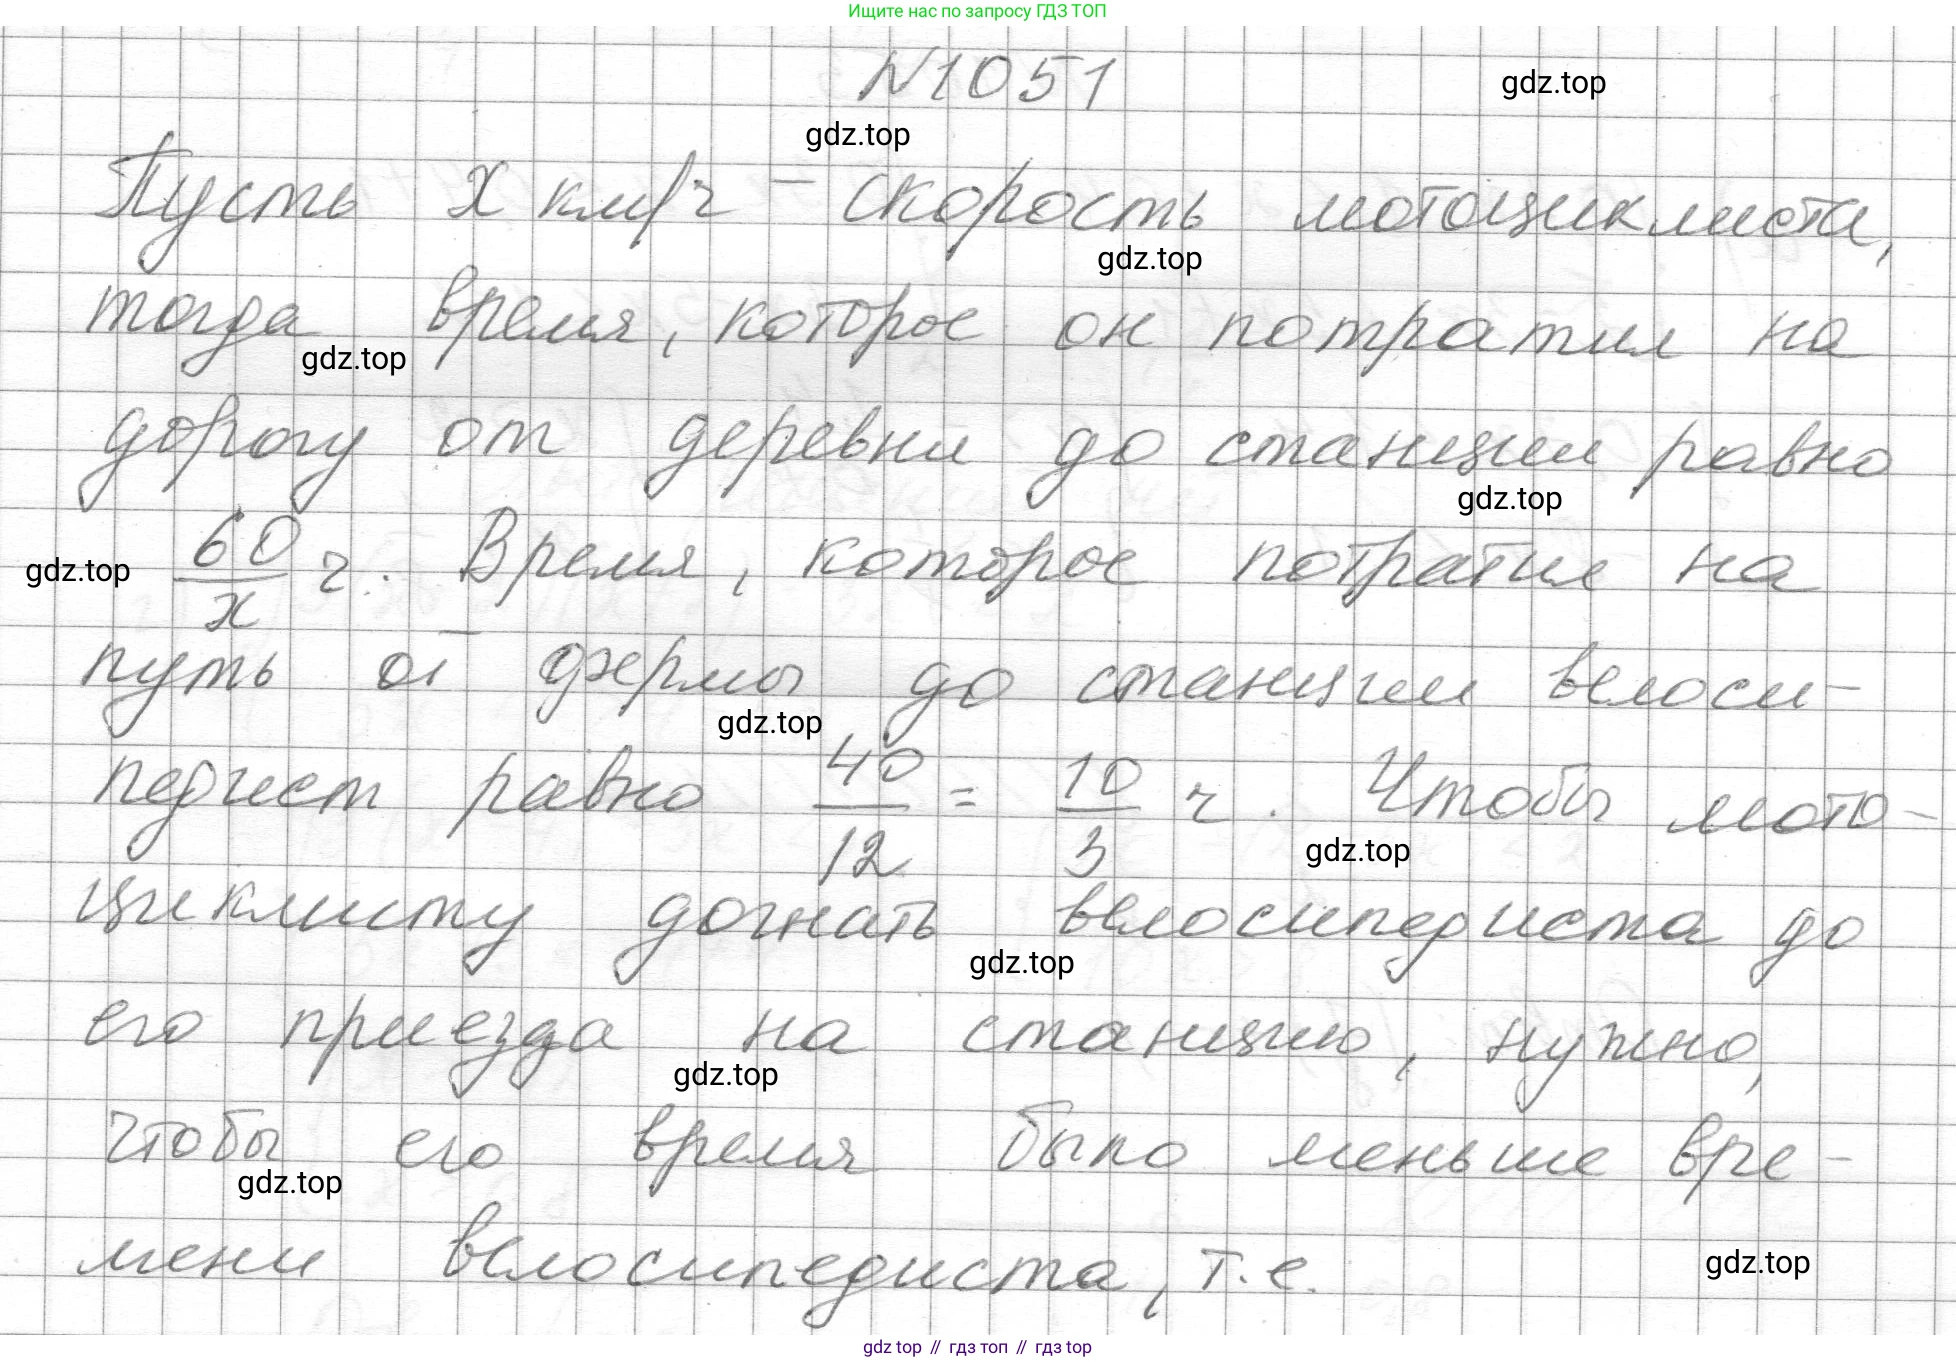 Ищите нас по запросу ГДЗ ТОП
N1051
gdz.top
gdz.top
Пусть x км/ч – скорость мотоциклиста,
gdz.top
тогда время, которое он потратил на
gdz.top
дорогу от деревни до станции равно
gdz.top
gdz.top 60/x ч. Время, которое потратил на
путь от фермы до станции велоси-
gdz.top
педист равно 40/12 = 10/3 ч. Чтобы мото-
gdz.top
циклисту догнать велосипедиста до
gdz.top
его приезда на станцию, нужно,
gdz.top
чтобы его время было меньше вре-
gdz.top
мени велосипедиста, т.е.
gdz.top
gdz top // гдз топ // gdz top